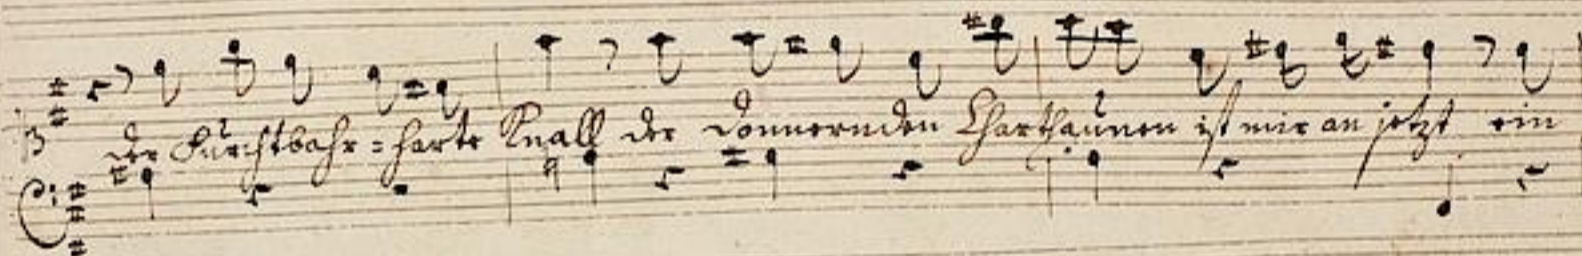 der furchtbahr-harte Knall der donnernden Charthaunen ist mir an jetzt ein